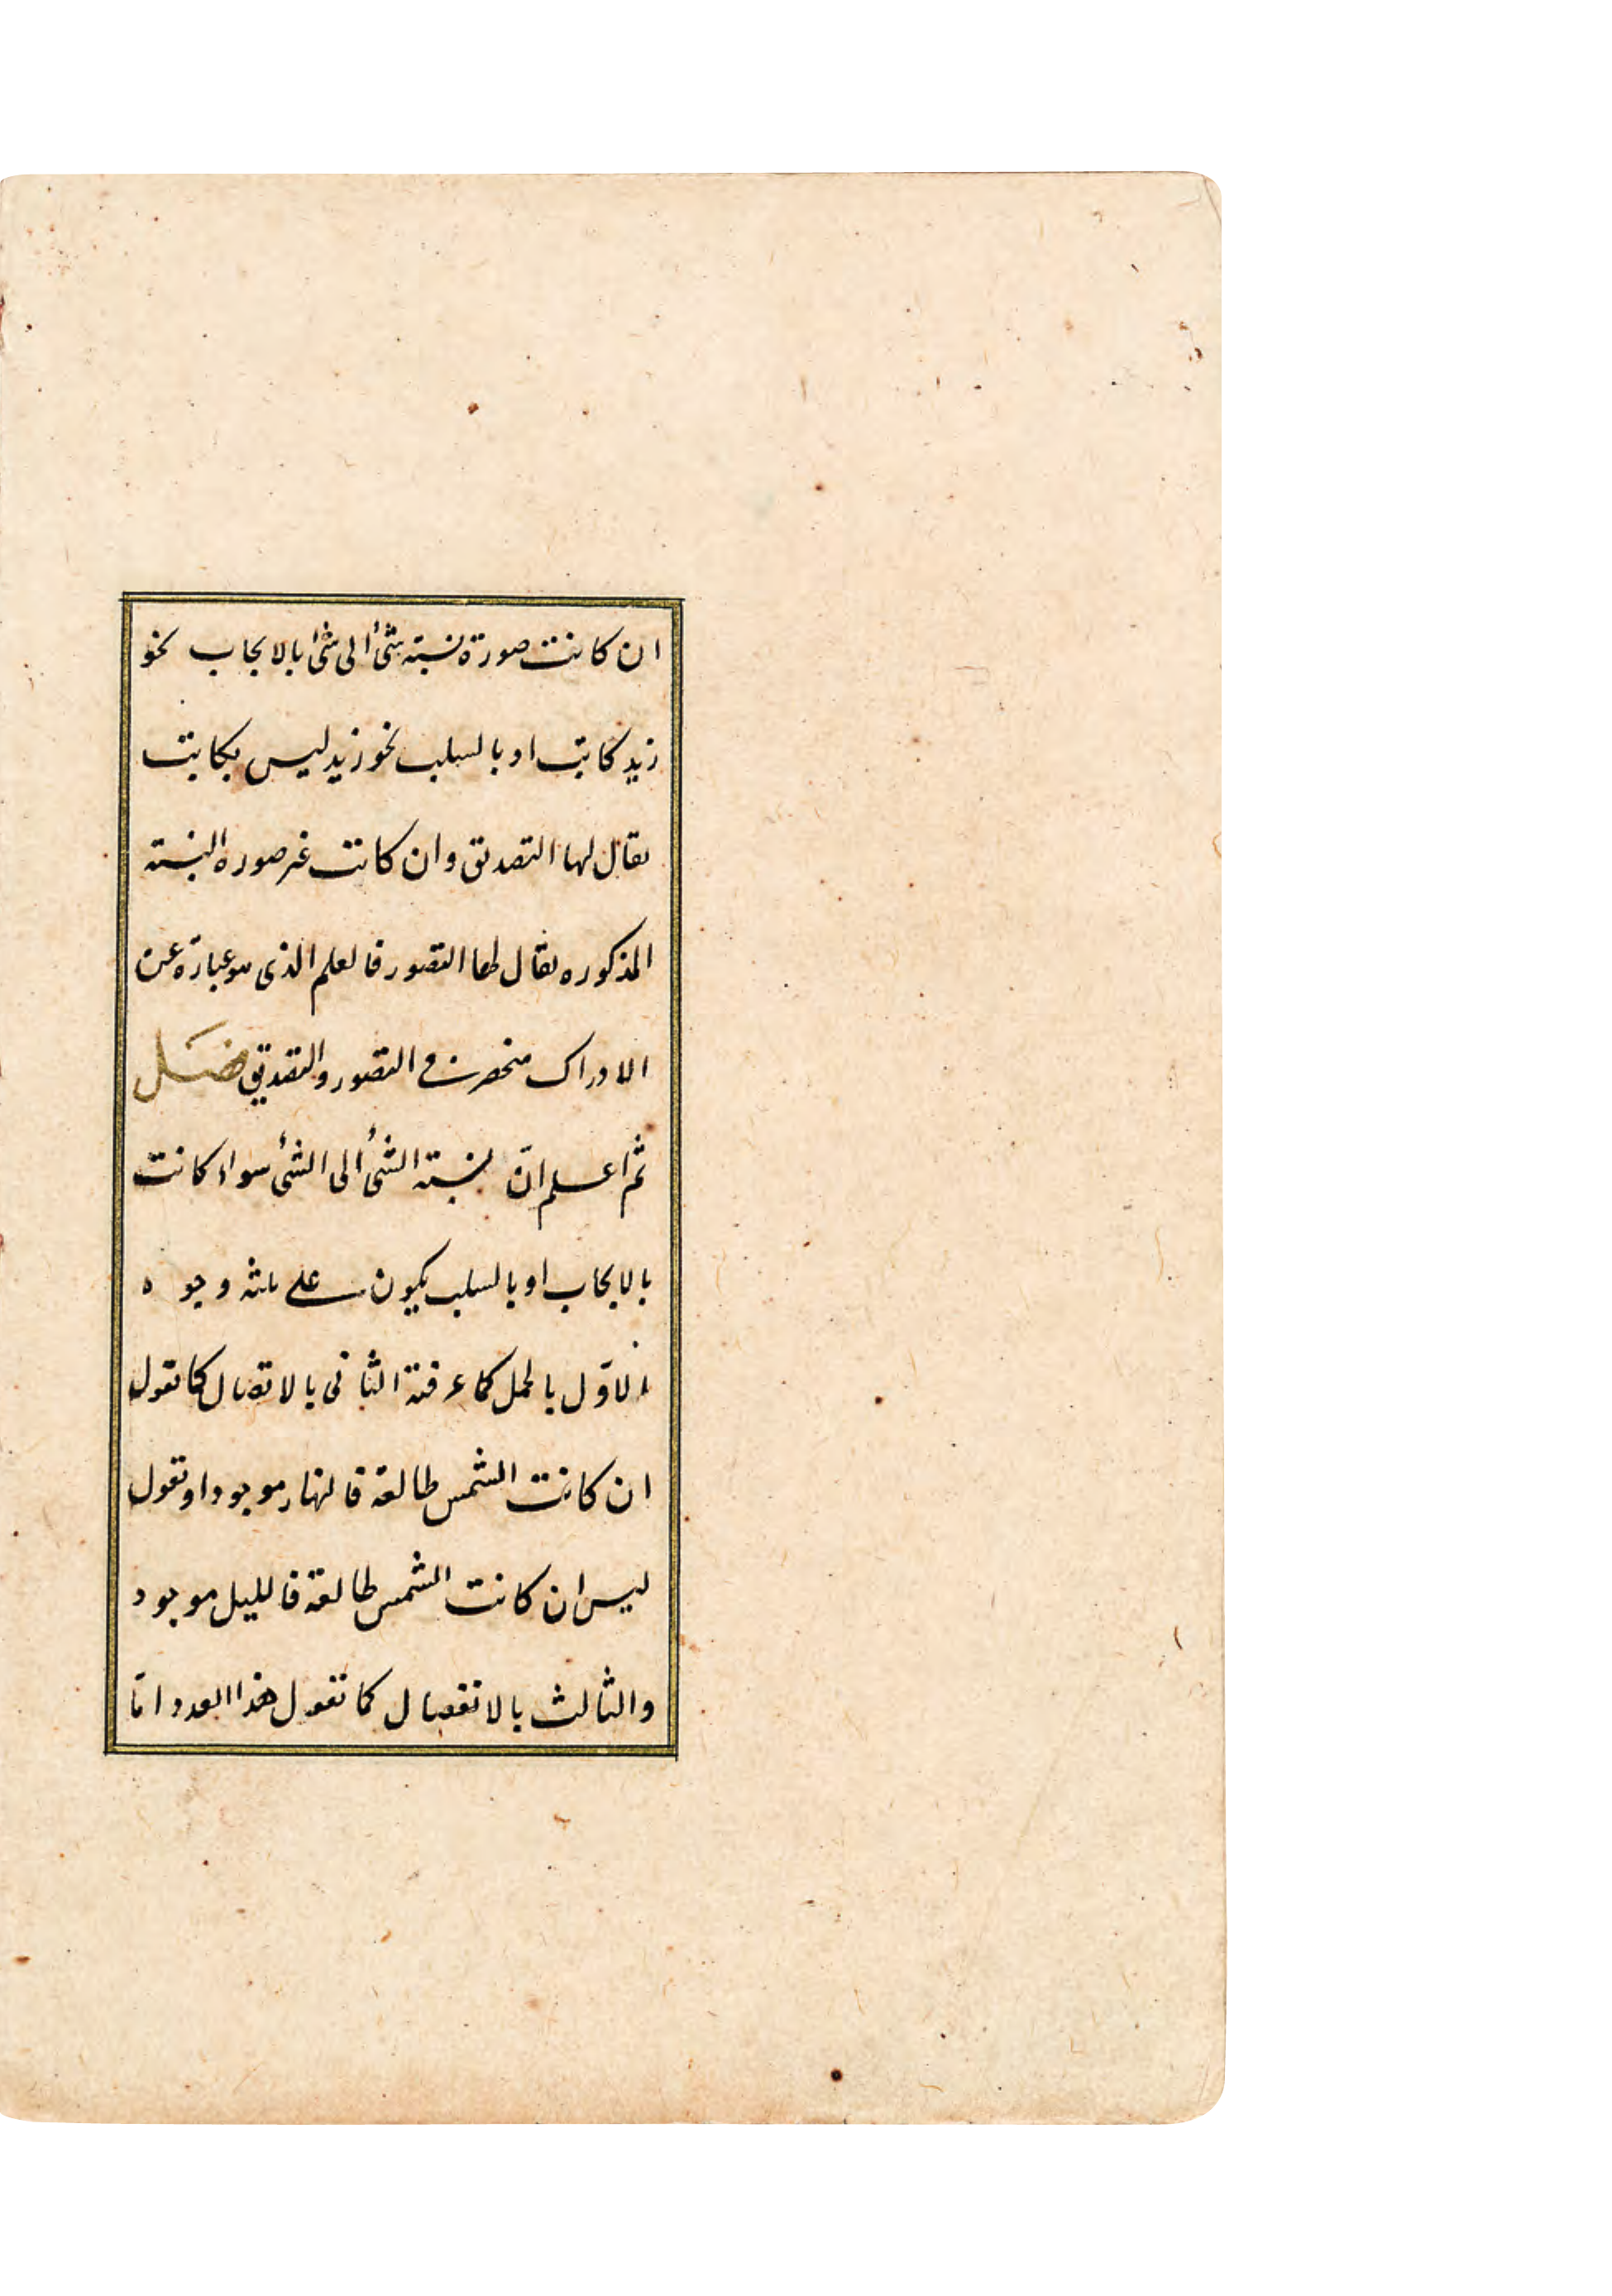 ان كانت صورة نسبته شئ الى شئ بالايجاب نحو
زيد كاتب او بالسلب نحو زيد ليس بكاتب
يقال لها التصديق وان كانت غير صوره النسبته
المذكوره يقال لها التصور فالعلم الذى هو عبارة عن
الادراك منحصر فى التصور والتصديق فصل
ثم اعلم انّ نسبته الشئ الى الشئ سواء كانت
بالايجاب او بالسلب يكون على ثلثه وجوه
الاوّل بالحمل كما عرفته الثانى بالاتصال كما تقول
ان كانت الشمس طالعة فالنهار موجود او تقول
ليس ان كانت الشمس طالعة فالليل موجود
والثالث بالانفصال كما تقول هذا العدد امّا